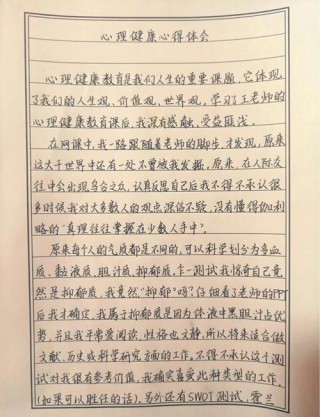 心理健康心得体会
心理健康教育是我们人生的重要课题，它体现
了我们的人生观、价值观、世界观，学习了王老师的
心理健康教育课后，我深有感触，受益匪浅。
在网课中，我一路跟随着老师的脚步，才发现，原来
这大千世界中还有一处不曾被我发掘，原来，在人际交
往中会出现乌合之众，认真反思自己后我不得不承认很
多时候我对大多数人的观点深信不疑，没有懂得伽利
略的“真理往往掌握在少数人手中”。
原来每个人的气质都是不同的，可以科学划分为多血
质、黏液质、胆汁质、抑郁质，乍一测试我惊奇自己竟
然是抑郁质，我竟然“抑郁”吗？仔细看了老师的PPT
后我才确定，我属于抑郁质是因为体液中黑胆汁占优
势，并且我平常爱阅读，性格也文静，所以将来适合做
文献、历史或科学研究方面的工作，不得不承认这个测
试对我很有参考价值，我确实喜爱此种类型的工作。
（如果可以胜任的话），另外还有SWOT测试，霍兰